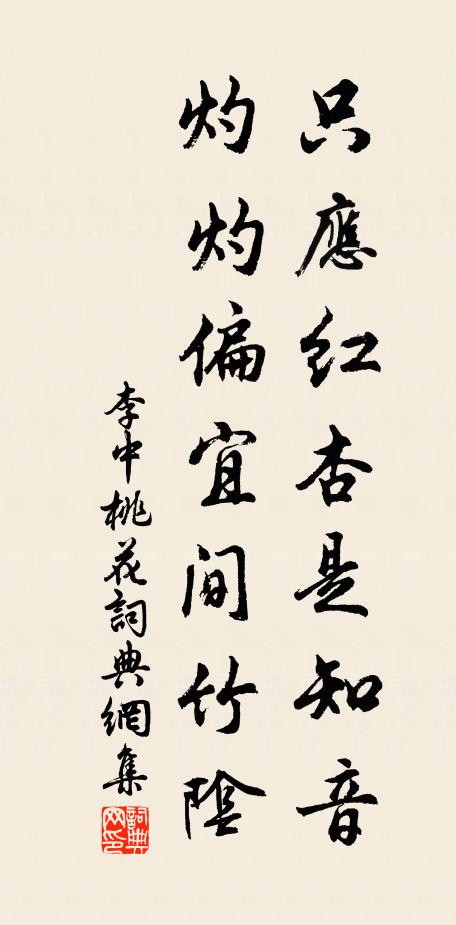 只應红杏是知音
灼灼偏宜間竹陰
李中桃花詞典網集
詞典网印